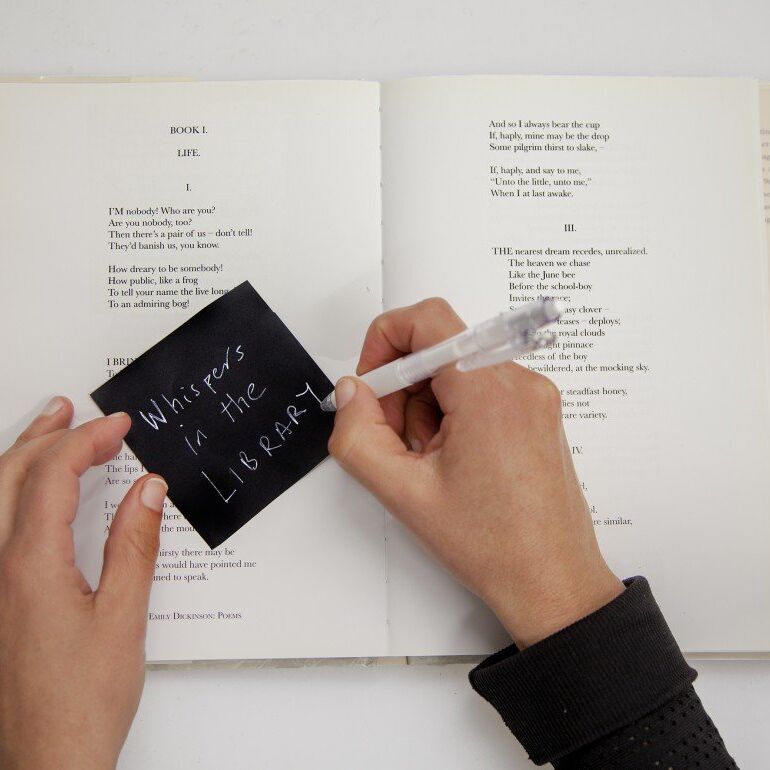 BOOK I.
LIFE.
I.
I'M nobody! Who are you?
Are you nobody, too?
Then there's a pair of us – don't tell!
They'd banish us, you know.
How dreary to be somebody!
How public, like a frog
To tell your name the live long
To an admiring bog!
Whispers
in the
LIBRARY
The lips
Are so
the mou
thirsty there may be
s would have pointed me
ined to speak.
EMILY DICKINSON: POEMS
And so I always bear the cup
If, haply, mine may be the drop
Some pilgrim thirst to slake, –
If, haply, and say to me,
"Unto the little, unto me,"
When I at last awake.
III.
THE nearest dream recedes, unrealized.
The heaven we chase
Like the June bee
Before the school-boy
Invites the race;
asy clover –
teases – deploys;
royal clouds
ght pinnace
eedless of the boy
bewildered, at the mocking sky.
r steadfast honey,
lies not
rare variety.
IV.
re similar,